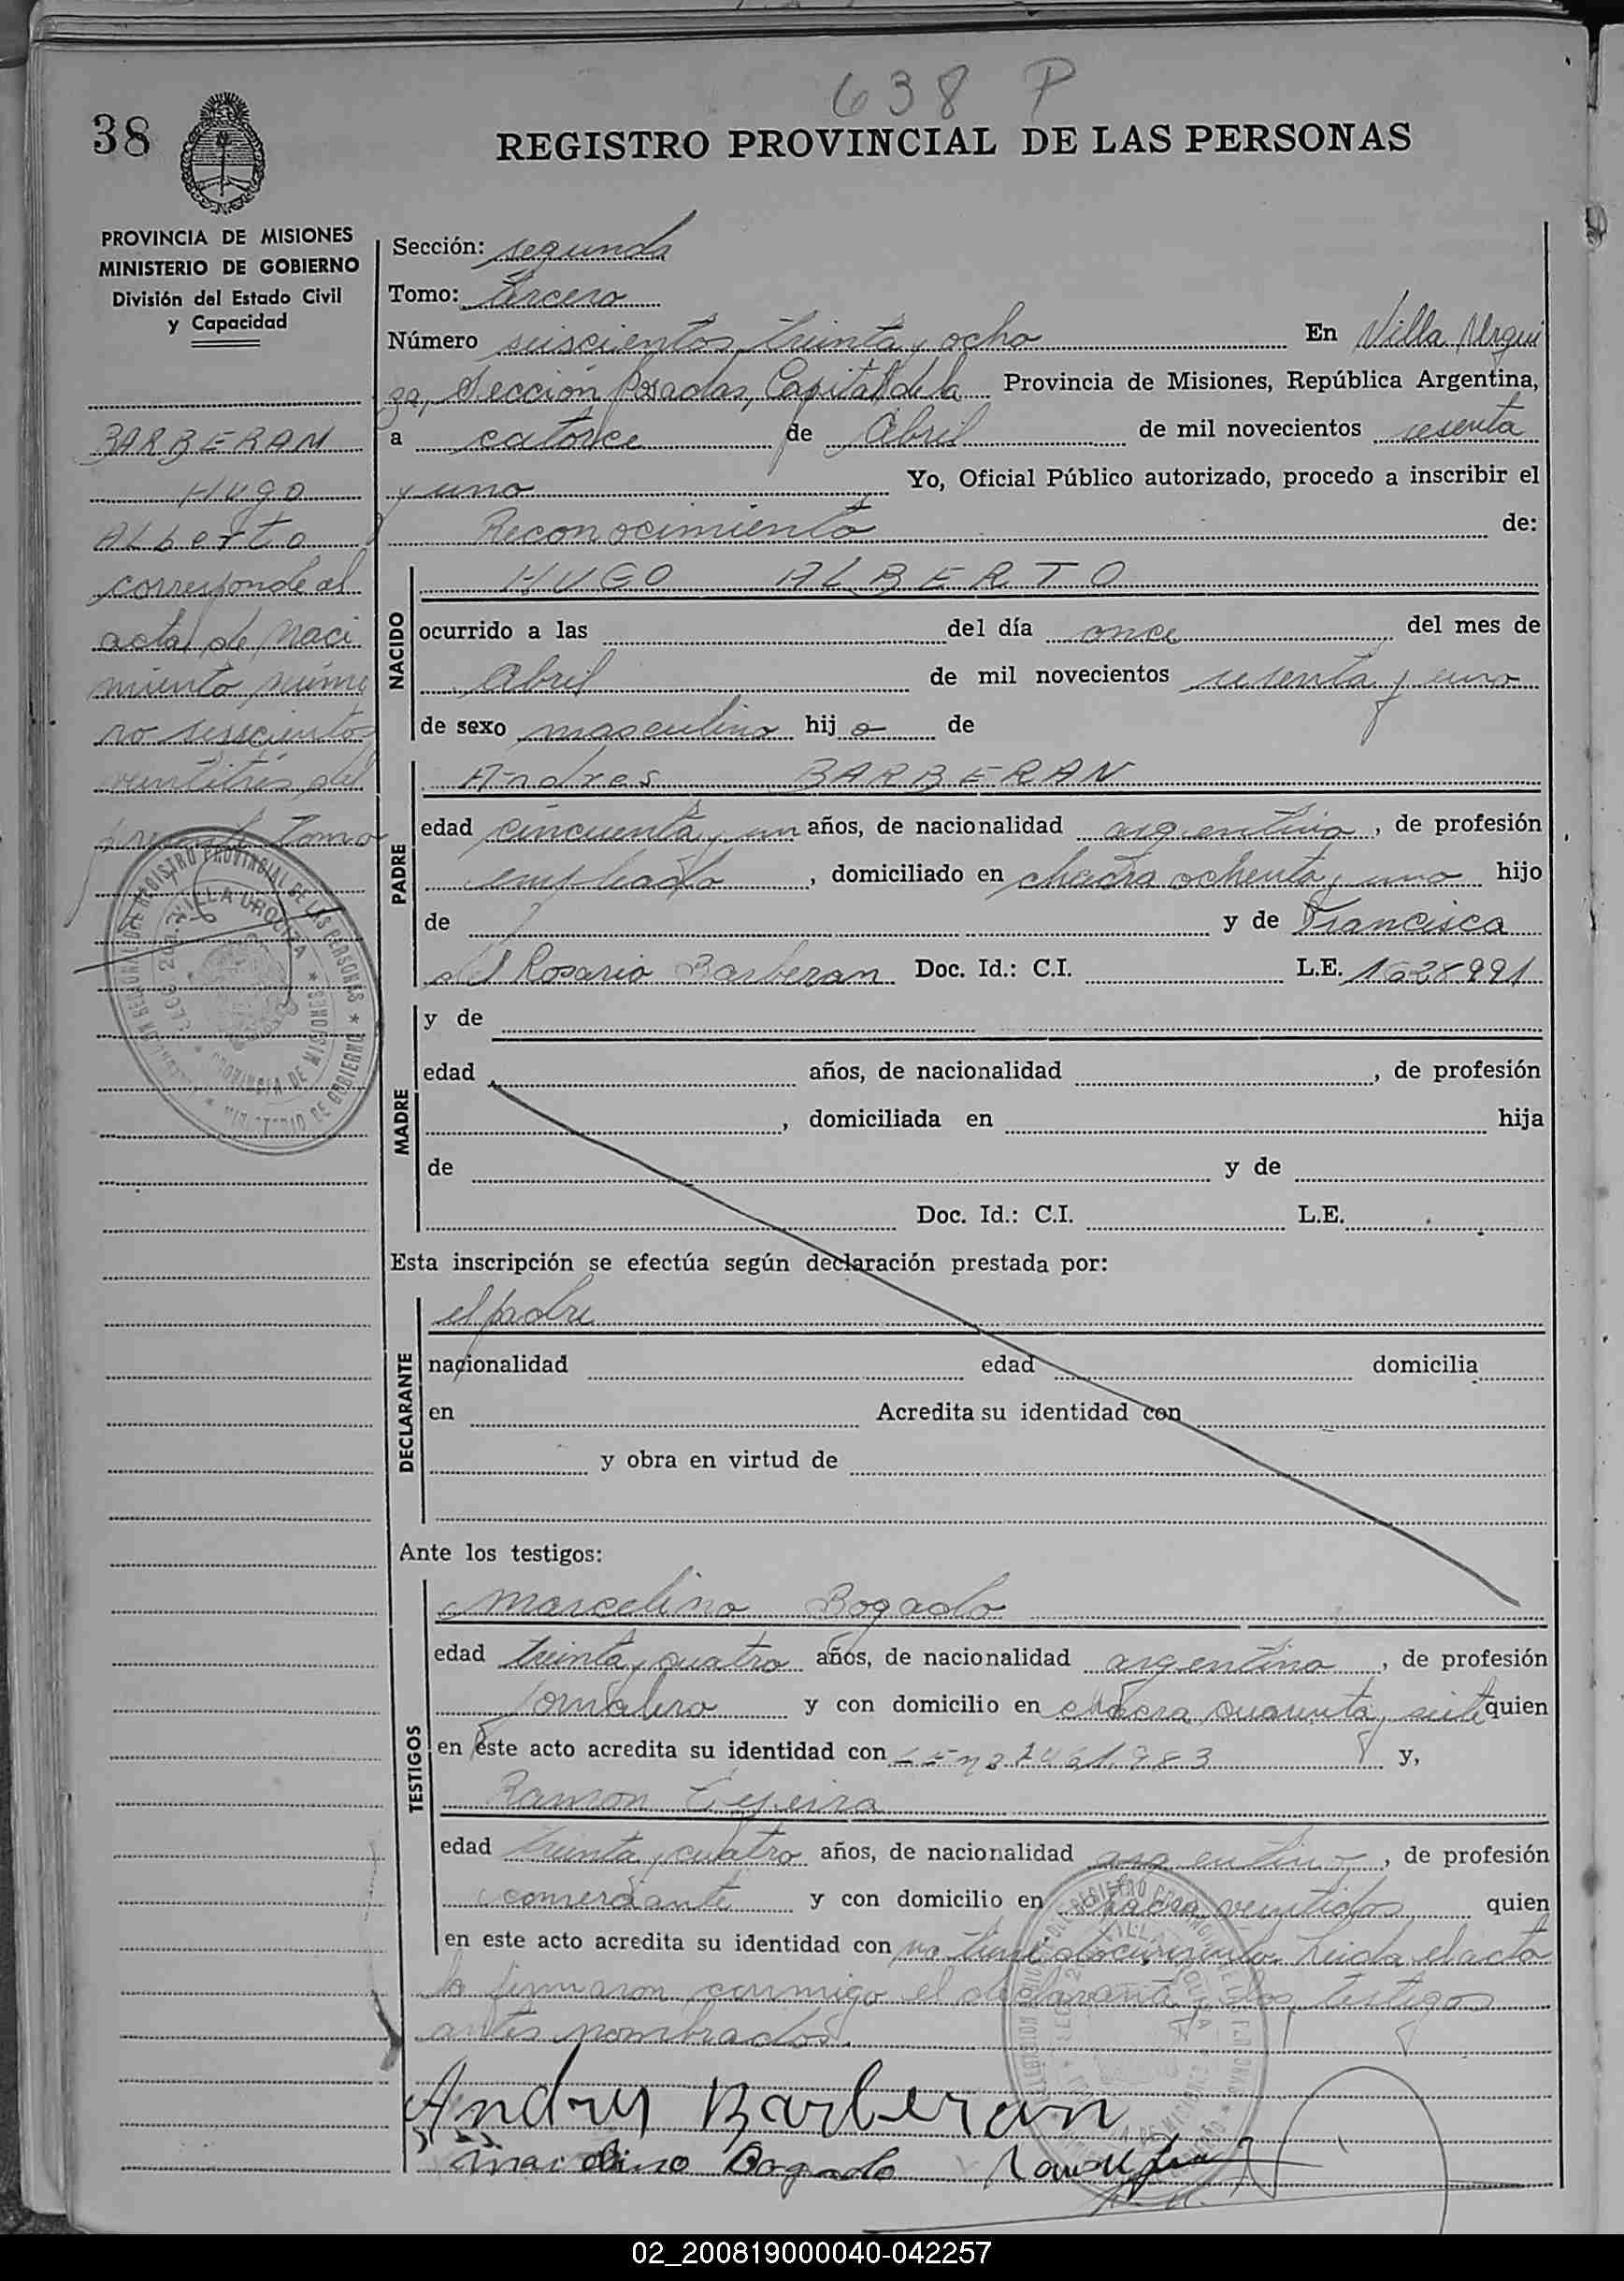 638 P
38
REGISTRO PROVINCIAL DE LAS PERSONAS
PROVINCIA DE MISIONES
MINISTERIO DE GOBIERNO
División del Estado Civil
y Capacidad
BARBERAN
Hugo
Alberto
corresponde al
acta de naci
miento núme
ro seiscientos
veintitres del
presente tomo
Sección: segunda
Tomo: tercero
Número seiscientos treinta y ocho En Villa Urqui
za, Sección Posadas, Capital de la Provincia de Misiones, República Argentina,
a catorce de Abril de mil novecientos sesenta
y uno Yo, Oficial Público autorizado, procedo a inscribir el
Reconocimiento de:
NACIDO
HUGO ALBERTO
ocurrido a las del día once del mes de
Abril de mil novecientos sesenta y uno
de sexo masculino hijo de
PADRE
Andres BARBERAN
edad cincuenta y un años, de nacionalidad argentina, de profesión
empleado, domiciliado en chacra ochenta y uno hijo
de y de Francisca
del Rosario Barberan Doc. Id.: C.I. L.E. 1628991
MADRE
y de
edad años, de nacionalidad , de profesión
, domiciliada en hija
de y de
Doc. Id.: C.I. L.E.
Esta inscripción se efectúa según declaración prestada por:
DECLARANTE
el padre
nacionalidad edad domicilia
en Acredita su identidad con
y obra en virtud de
Ante los testigos:
TESTIGOS
Marcelino Bogado
edad treinta y cuatro años, de nacionalidad argentino, de profesión
jornalero y con domicilio en chacra cuarenta y siete quien
en este acto acredita su identidad con y,
Ramon Teyeira
edad treinta y cuatro años, de nacionalidad argentino, de profesión
comerciante y con domicilio en chacra veintidos quien
en este acto acredita su identidad con no tiene documento. Leida el acta
la firmaron conmigo el declarante y los testigos
antes nombrados.
Andres Barberan
Marcelino Bogado
02_200819000040-042257